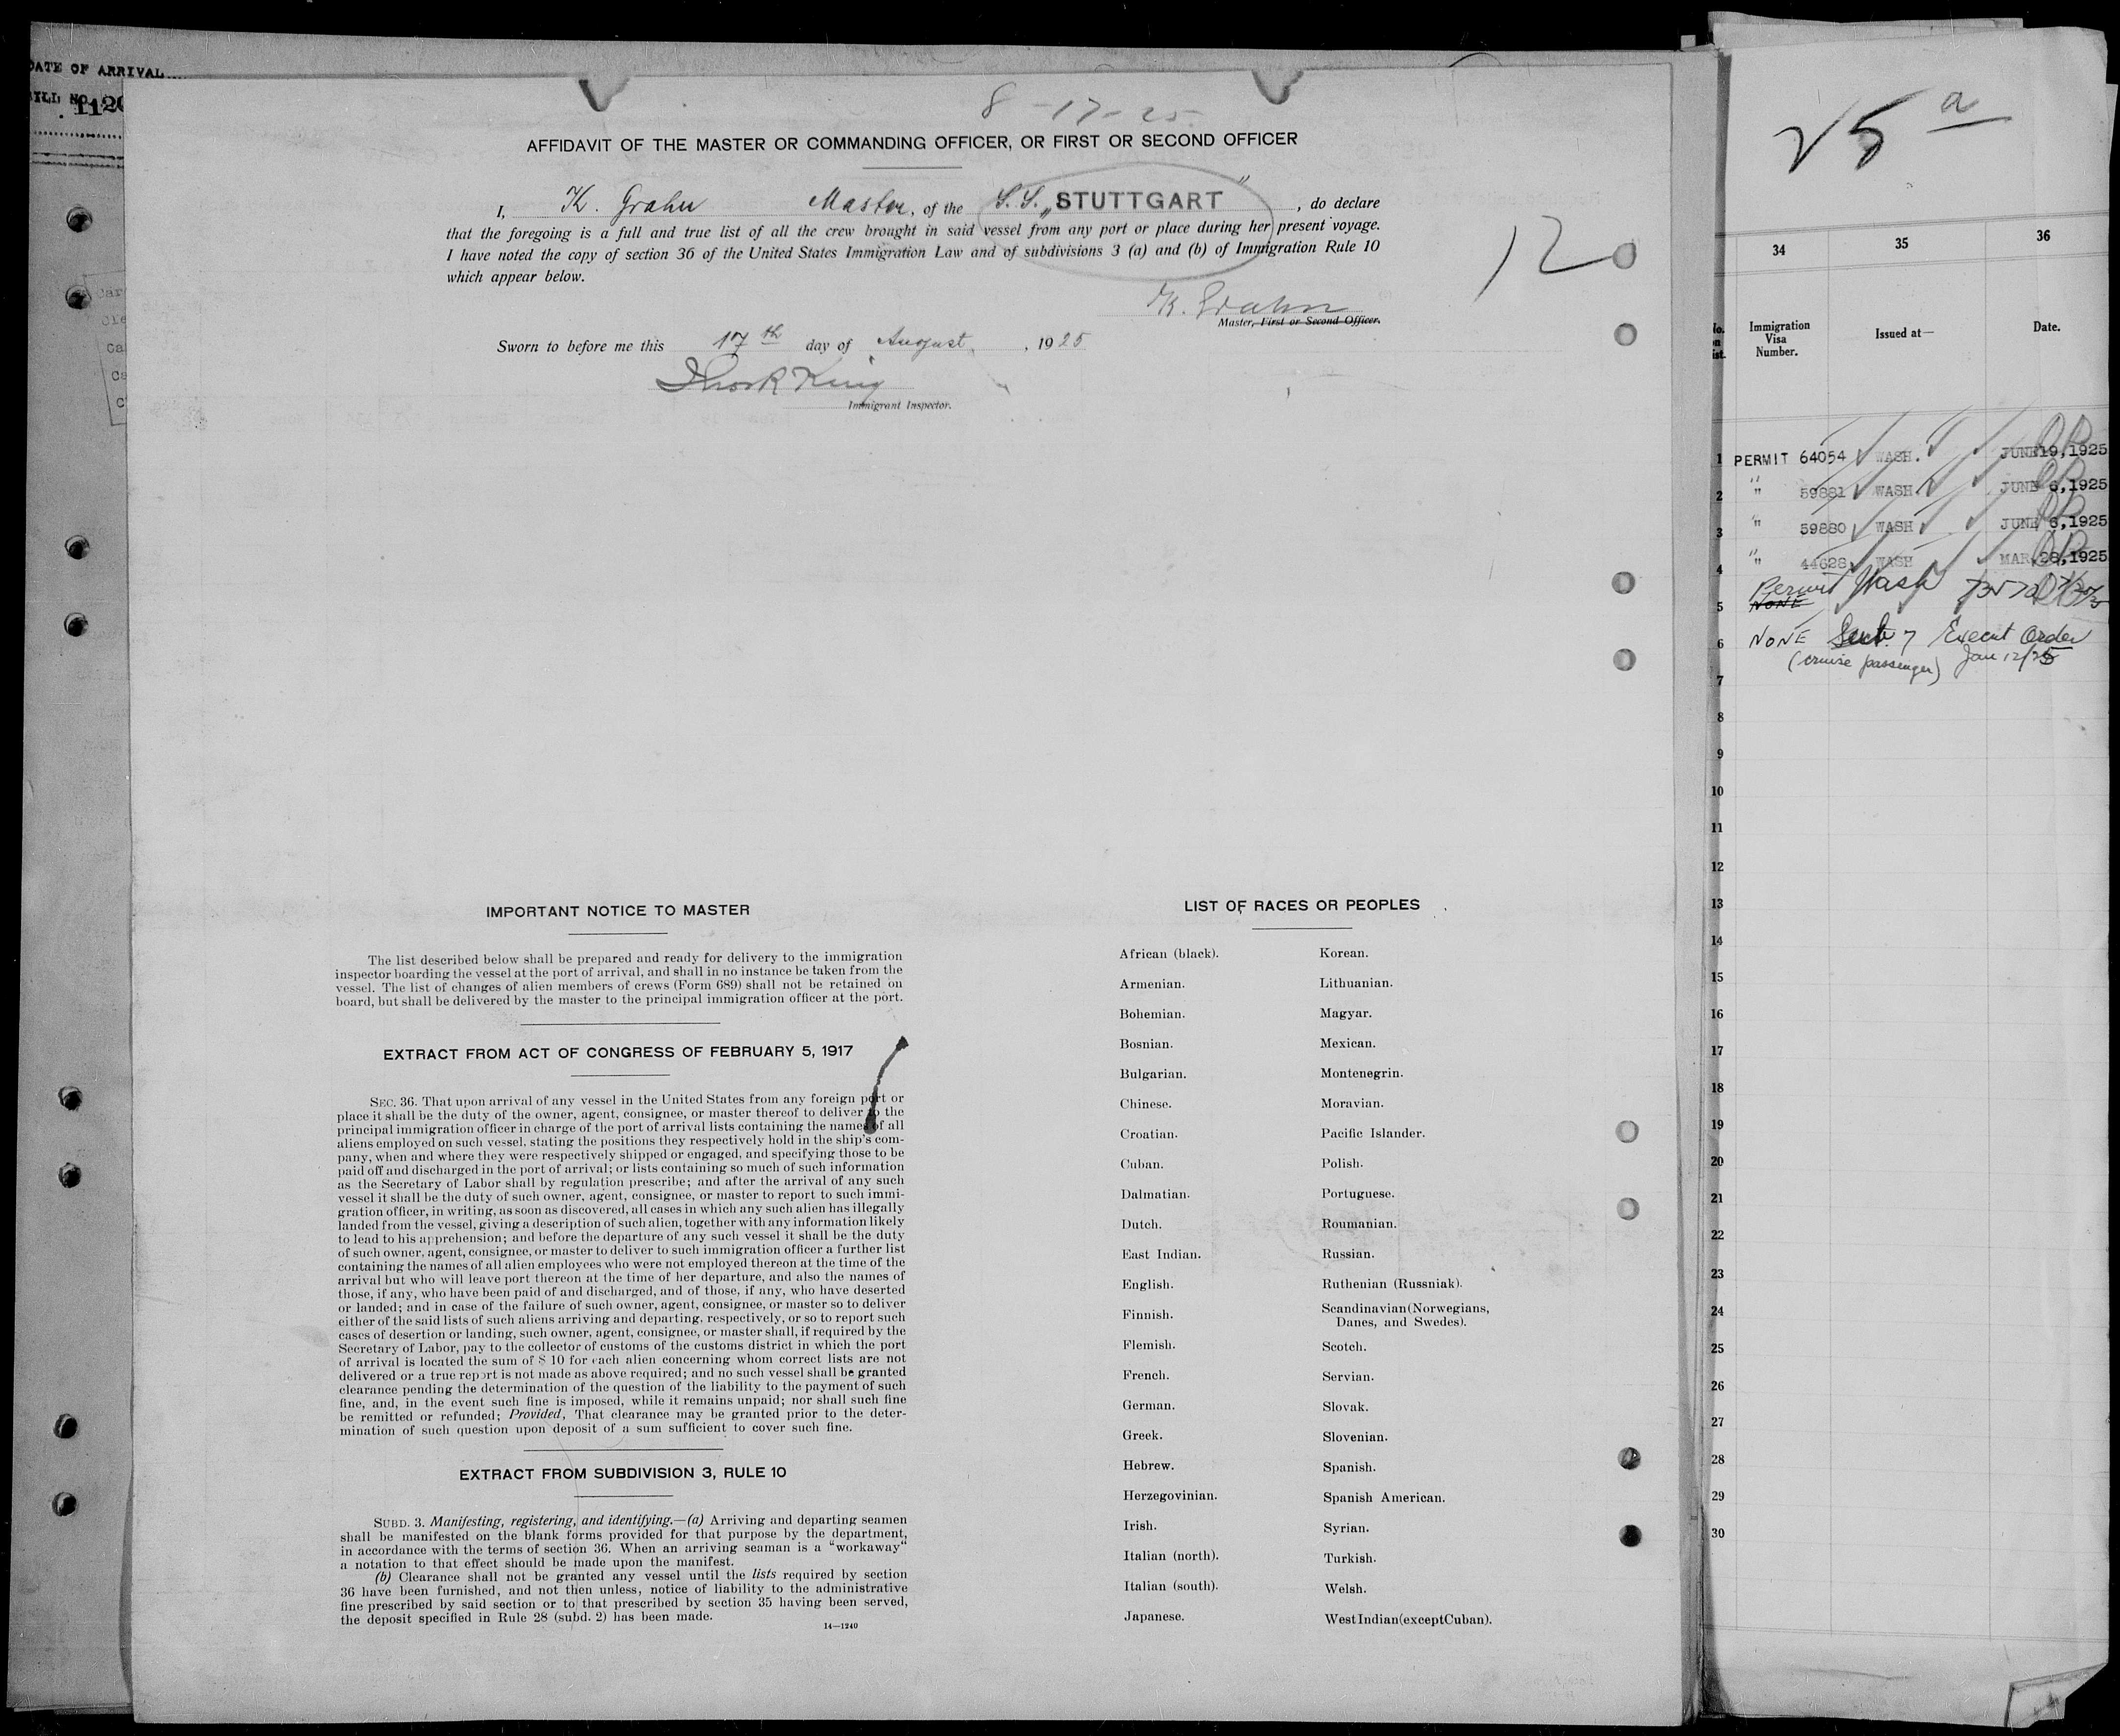 DATE OF ARRIVAL
BILL NO. 1120
8-17-25
AFFIDAVIT OF THE MASTER OR COMMANDING OFFICER, OR FIRST OR SECOND OFFICER
I, K. Grahn Master, of the S.S. „STUTTGART", do declare
that the foregoing is a full and true list of all the crew brought in said vessel from any port or place during her present voyage.
I have noted the copy of section 36 of the United States Immigration Law and of subdivisions 3 (a) and (b) of Immigration Rule 10
which appear below.
12
K. Grahn
Master, First or Second Officer.
Sworn to before me this 17th day of August, 1925
King
Immigrant Inspector.
IMPORTANT NOTICE TO MASTER
The list described below shall be prepared and ready for delivery to the immigration
inspector boarding the vessel at the port of arrival, and shall in no instance be taken from the
vessel. The list of changes of alien members of crews (Form 689) shall not be retained on
board, but shall be delivered by the master to the principal immigration officer at the port.
EXTRACT FROM ACT OF CONGRESS OF FEBRUARY 5, 1917
SEC. 36. That upon arrival of any vessel in the United States from any foreign port or
place it shall be the duty of the owner, agent, consignee, or master thereof to deliver to the
principal immigration officer in charge of the port of arrival lists containing the names of all
aliens employed on such vessel, stating the positions they respectively hold in the ship's com-
pany, when and where they were respectively shipped or engaged, and specifying those to be
paid off and discharged in the port of arrival; or lists containing so much of such information
as the Secretary of Labor shall by regulation prescribe; and after the arrival of any such
vessel it shall be the duty of such owner, agent, consignee, or master to report to such immi-
gration officer, in writing, as soon as discovered, all cases in which any such alien has illegally
landed from the vessel, giving a description of such alien, together with any information likely
to lead to his apprehension; and before the departure of any such vessel it shall be the duty
of such owner, agent, consignee, or master to deliver to such immigration officer a further list
containing the names of all alien employees who were not employed thereon at the time of the
arrival but who will leave port thereon at the time of her departure, and also the names of
those, if any, who have been paid of and discharged, and of those, if any, who have deserted
or landed; and in case of the failure of such owner, agent, consignee, or master so to deliver
either of the said lists of such aliens arriving and departing, respectively, or so to report such
cases of desertion or landing, such owner, agent, consignee, or master shall, if required by the
Secretary of Labor, pay to the collector of customs of the customs district in which the port
of arrival is located the sum of $ 10 for each alien concerning whom correct lists are not
delivered or a true report is not made as above required; and no such vessel shall be granted
clearance pending the determination of the question of the liability to the payment of such
fine, and, in the event such fine is imposed, while it remains unpaid; nor shall such fine
be remitted or refunded; Provided, That clearance may be granted prior to the deter-
mination of such question upon deposit of a sum sufficient to cover such fine.
EXTRACT FROM SUBDIVISION 3, RULE 10
SUBD. 3. Manifesting, registering, and identifying.—(a) Arriving and departing seamen
shall be manifested on the blank forms provided for that purpose by the department,
in accordance with the terms of section 36. When an arriving seaman is a "workaway"
a notation to that effect should be made upon the manifest.
(b) Clearance shall not be granted any vessel until the lists required by section
36 have been furnished, and not then unless, notice of liability to the administrative
fine prescribed by said section or to that prescribed by section 35 having been served,
the deposit specified in Rule 28 (subd. 2) has been made.
14—1240
LIST OF RACES OR PEOPLES
African (black). Korean.
Armenian. Lithuanian.
Bohemian. Magyar.
Bosnian. Mexican.
Bulgarian. Montenegrin.
Chinese. Moravian.
Croatian. Pacific Islander.
Cuban. Polish.
Dalmatian. Portuguese.
Dutch. Roumanian.
East Indian. Russian.
English. Ruthenian (Russniak).
Finnish. Scandinavian(Norwegians,
Danes, and Swedes).
Flemish. Scotch.
French. Servian.
German. Slovak.
Greek. Slovenian.
Hebrew. Spanish.
Herzegovinian. Spanish American.
Irish. Syrian.
Italian (north). Turkish.
Italian (south). Welsh.
Japanese. West Indian(exceptCuban).
25 a
34 35 36
Immigration Visa Number. Issued at— Date.
1 PERMIT 64054 WASH. JUNE 19,1925
2 " 59881 WASH JUNE 6,1925
3 " 59880 WASH JUNE 6,1925
4 " 44628 WASH MAR.28,1925
Permit Wash
5 NONE
6 NONE Sect. 7 Execut Order
(cruise passenger) Jan 12/25
7
8
9
10
11
12
13
14
15
16
17
18
19
20
21
22
23
24
25
26
27
28
29
30